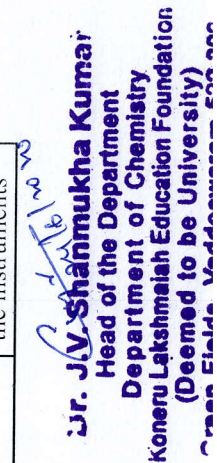 the instruments
Dr. J.V. Shanmukha Kumar
Head of the Department
Department of Chemistry
Koneru Lakshmaiah Education Foundation
(Deemed to be University)
Green Fields, Vaddeswaram